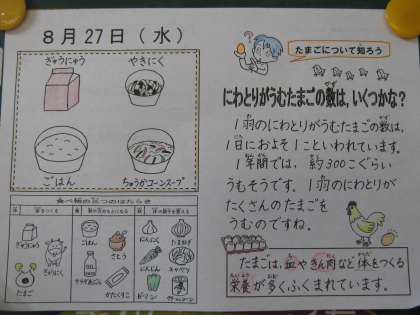 8月27日（水）
ぎゅうにゅう
やきにく
ごはん
ちゅうかコーンスープ
食べ物の三つのはたらき
ぎゅうにゅう
ぎゅうにく
たまご
ごはん
さとう
かたくりこ
にんじん
にんにく
ピーマン
たまねぎ
キャベツ
たまごについて知ろう
にわとりがうむたまごの数は、いくつかな？
1羽のにわとりがうむたまごの数は、
1日におよそ1こといわれています。
1年間では、約300こぐらい
うむそうです。1羽のにわとりが
たくさんのたまごを
うむのですね。
たまごは、血やきん肉など体をつくる
栄養が多くふくまれています。